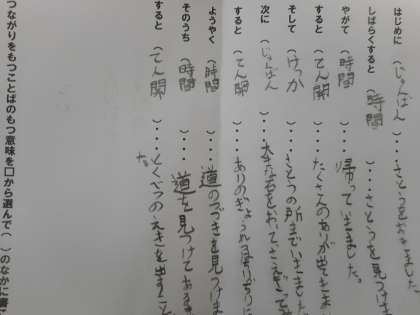 はじめに（じゅんばん）・・・さとうをおきました
しばらくすると（時間）・・・さとうを見つけま
やがて（時間）・・・帰っていきました。
すると（てん開）・・・たくさんのありが出てきま
そして（けっか）・・・さとうの所までいきました
次に（じゅんばん）・・・大きな石をおいて
すると（てん開）・・・ありの
ようやく（時間）・・・道のつづきを見つけま
そのうち（時間）・・・道を見つけて
すると（てん開）・・・とくべつのえきを出すこと
な
つながりをもつことばのもつ意味を口から選んで（ ）のなかに書